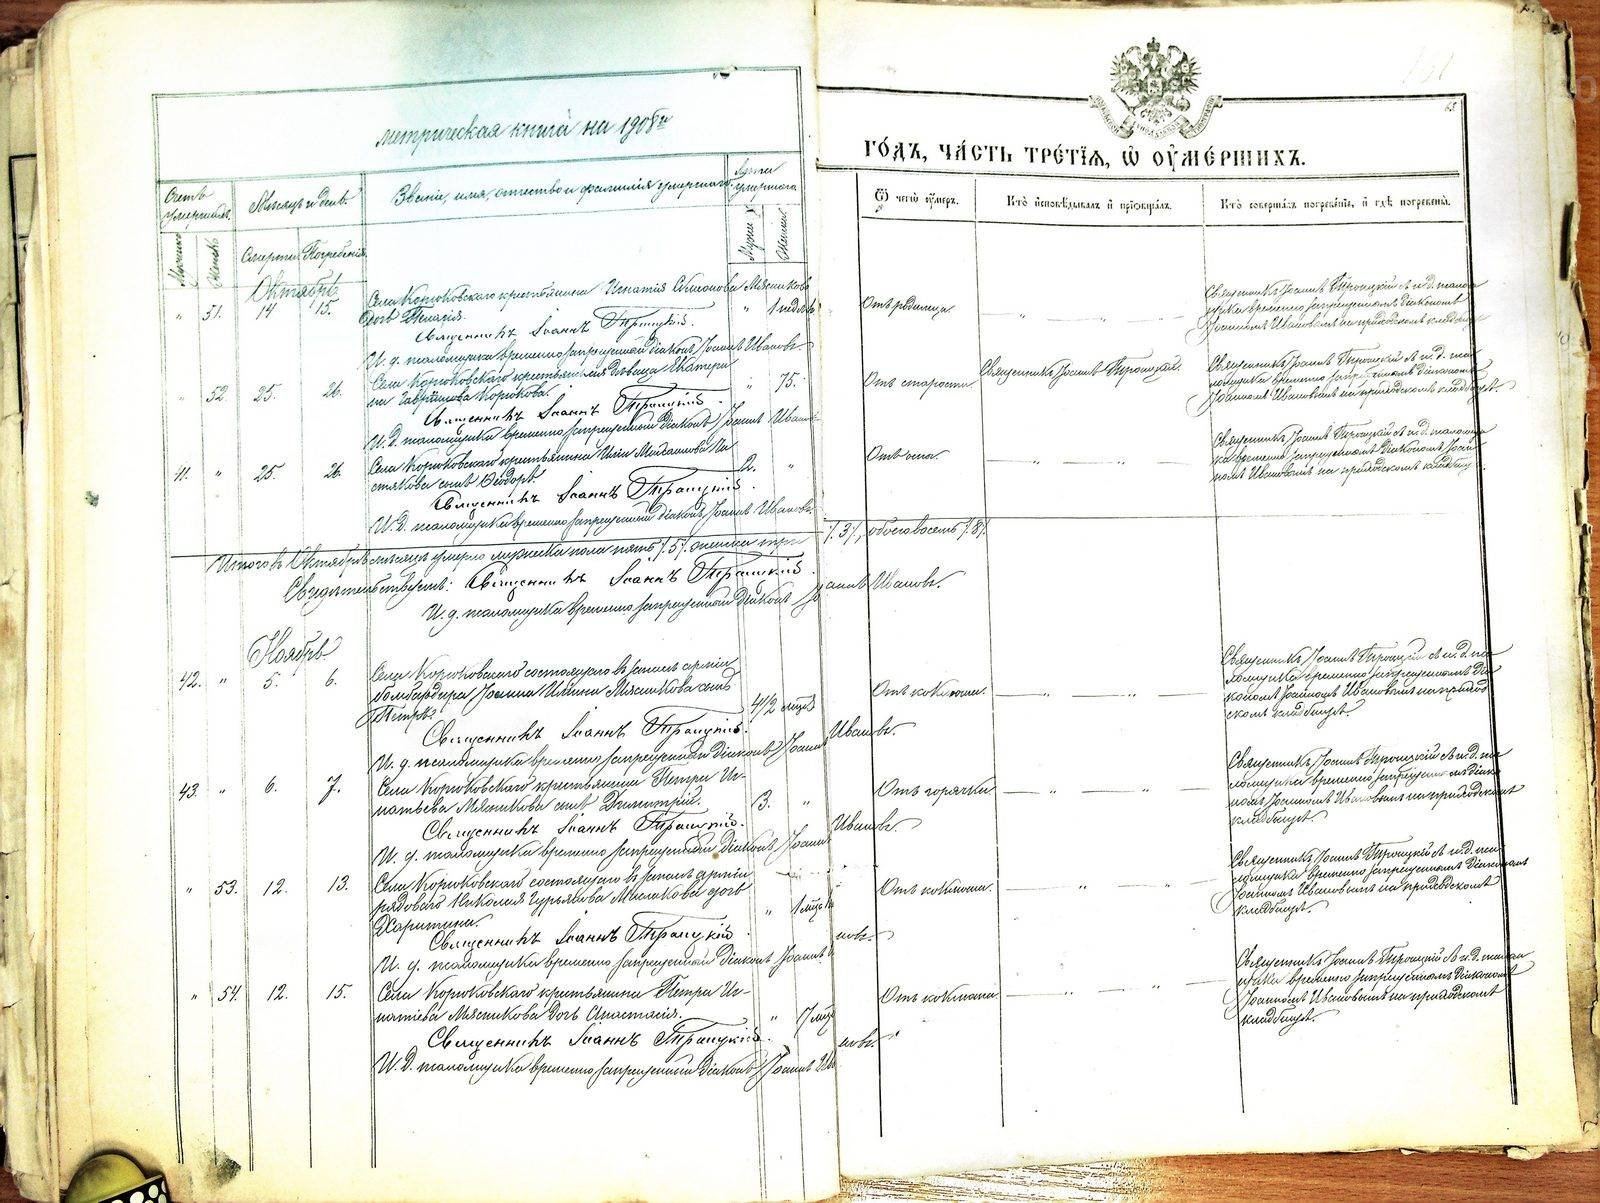 метрическая книга на 1908й
годъ, часть третїѧ, ѡ оумершихъ.
65
Счетъ умершихъ.
Мѣсяцъ и день.
Званіе, имя, отчество и фамилія умершаго.
Лѣта умершаго.
Ѿ чегѡ оумеръ.
Кто исповѣдывалъ и прїобщалъ.
Кто совершалъ погребенїе, и гдѣ погребены.
Женск.
Смерти.
Погребенія.
Октябрь
" 51. 14 15.
Села Корюковскаго крестьянина Игнатія Мясникова
дочь Пелагія.
" 1 недѣл
Отъ родимца
Священникъ Іоаннъ Троицкій.
И. д. псаломщика временно запрещенный діаконъ Іоаннъ Ивановъ.
Священникъ Іоаннъ Троицкій съ и. д. псалом
щика временно запрещеннымъ діакономъ
Іоанномъ Ивановымъ на приходскомъ кладбищѣ
" 52. 25. 26.
Села Корюковскаго крестьянская дѣвица Екатери
на Гаврилова Корюкова.
" 75.
Отъ старости
Священникъ Іоаннъ Троицкій.
Священникъ Іоаннъ Троицкій.
И. д. псаломщика временно запрещенный діаконъ Іоаннъ Ивановъ
Священникъ Іоаннъ Троицкій съ и. д. пса
ломщика временно запрещеннымъ діакономъ
Іоанномъ Ивановымъ на приходскомъ кладбищѣ.
41. " 25. 26.
Села Корюковскаго крестьянина
сынъ Ѳеодоръ.
2. "
Отъ оспы
Священникъ Іоаннъ Троицкій.
И. д. псаломщика временно запрещенный діаконъ Іоаннъ Ивановъ.
Священникъ Іоаннъ Троицкій съ и. д. псаломщи
ка временно запрещеннымъ діакономъ Іоан
номъ Ивановымъ на приходскомъ кладбищѣ
Итого въ Октябрѣ мѣсяцѣ умерло мужеска пола пять /5/, женска три /3/, обоего восемь /8/.
Свидѣтельствуемъ: Священникъ Іоаннъ Троицкій.
И. д. псаломщика временно запрещенный діаконъ Іоаннъ Ивановъ.
Ноябрь
42. " 5. 6.
Села Корюковскаго состоящаго въ запасѣ арміи
бомбардира Іоанна Мясникова сынъ
Петръ.
4 1/2 мѣсяц
Отъ коклюша.
Священникъ Іоаннъ Троицкій.
И. д. псаломщика временно запрещенный діаконъ Іоаннъ Ивановъ.
Священникъ Іоаннъ Троицкій съ и. д. пса
ломщика временно запрещеннымъ діа
кономъ Іоанномъ Ивановымъ на приход
скомъ кладбищѣ.
43. " 6. 7.
Села Корюковскаго крестьянина Петра Иг-
натьева Мясникова сынъ Димитрій.
3. "
Отъ горячки
Священникъ Іоаннъ Троицкій.
И. д. псаломщика временно запрещенный діаконъ Іоаннъ Ивановъ.
Священникъ Іоаннъ Троицкій съ и. д. пса
ломщика временно запрещеннымъ діако
номъ Іоанномъ Ивановымъ на приходскомъ
кладбищѣ.
" 53. 12. 13.
Села Корюковскаго состоящаго въ запасѣ арміи
рядоваго Николая Гурьянова Мясникова дочь
Харитина.
" 1 мѣс
Отъ коклюша.
Священникъ Іоаннъ Троицкій.
И. д. псаломщика временно запрещенный діаконъ Іоаннъ Ивановъ.
Священникъ Іоаннъ Троицкій съ и. д. пса
ломщика временно запрещеннымъ діакономъ
Іоанномъ Ивановымъ на приходскомъ
кладбищѣ.
" 54. 12. 15.
Села Корюковскаго крестьянина Петра Иг-
натіева Мясникова дочь Анастасія.
" 7 мѣс
Отъ коклюша.
Священникъ Іоаннъ Троицкій.
И. д. псаломщика временно запрещенный діаконъ Іоаннъ Ивановъ.
Священникъ Іоаннъ Троицкій съ и. д. псалом
щика временно запрещеннымъ діакономъ
Іоанномъ Ивановымъ на приходскомъ
кладбищѣ.